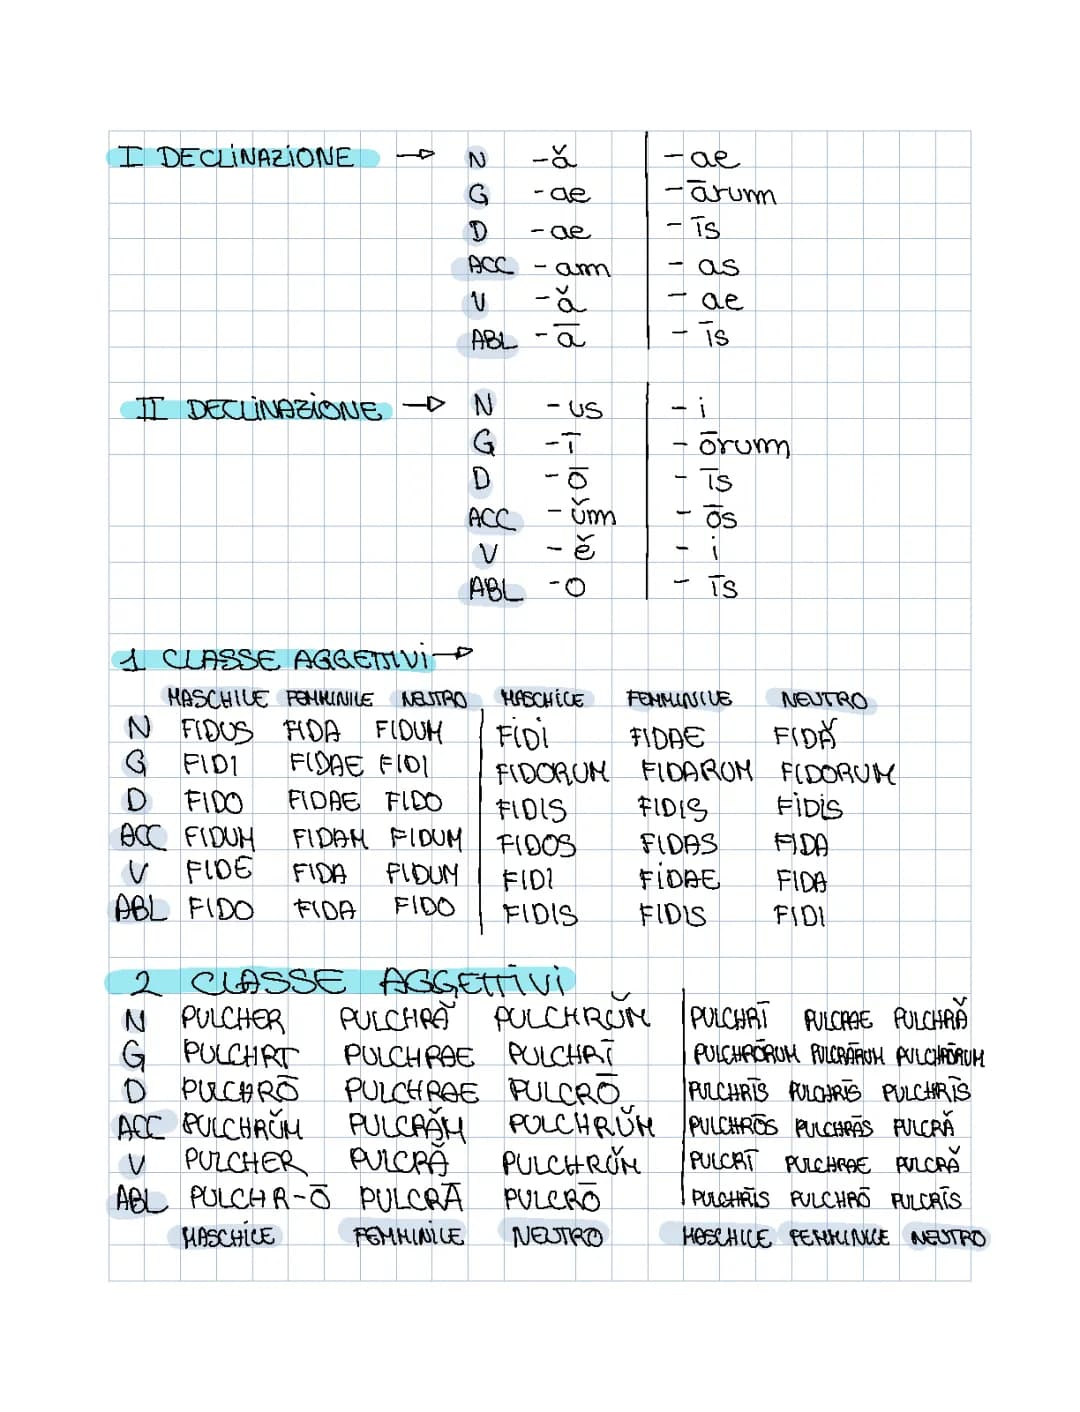 I DECLINAZIONE → N -ă | -ae
G -ae | -ārum
D -ae | -īs
ACC -am | -as
V -ă | -ae
ABL -ā | -īs
II DECLINAZIONE → N -us | -i
G -ī | -ōrum
D -ō | -īs
ACC -ŭm | -ōs
V -ĕ | -i
ABL -o | -īs
1 CLASSE AGGETTIVI →
MASCHILE FEMMINILE NEUTRO MASCHILE FEMMINILE NEUTRO
N FIDUS FIDA FIDUM | FIDI FIDAE FIDĂ
G FIDI FIDAE FIDI | FIDORUM FIDARUM FIDORUM
D FIDO FIDAE FIDO | FIDIS FIDIS FIDIS
ACC FIDUM FIDAM FIDUM | FIDOS FIDAS FIDA
V FIDE FIDA FIDUM | FIDI FIDAE FIDA
ABL FIDO FIDA FIDO | FIDIS FIDIS FIDI
2 CLASSE AGGETTIVI
N PULCHER PULCHRĂ PULCHRŬM | PULCHRĪ PULCRAE PULCHRĂ
G PULCHRĪ PULCHRAE PULCHRĪ | PULCHRŌRUM PULCRĀRUM PULCHRŌRUM
D PULCHRŌ PULCHRAE PULCRŌ | PULCHRĪS PULCHRĪS PULCHRĪS
ACC PULCHRŬM PULCRĂM PULCHRŬM | PULCHRŌS PULCHRĀS PULCRĂ
V PULCHER PULCRĂ PULCHRŬM | PULCRĪ PULCHRAE PULCRĂ
ABL PULCHR-Ō PULCRĀ PULCRŌ | PULCHRĪS PULCHRŌ PULCRĪS
MASCHILE FEMMINILE NEUTRO MASCHILE FEMMINILE NEUTRO